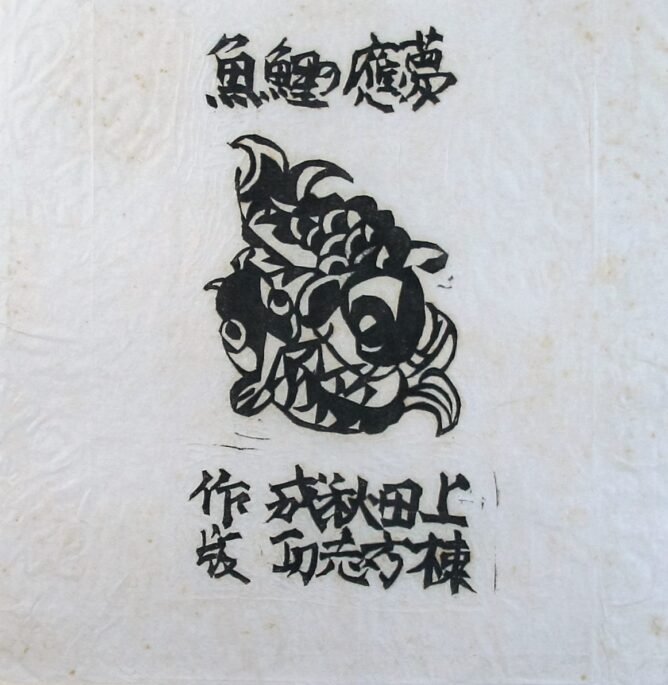 夢應の鯉魚
上田秋成作
棟方志功版